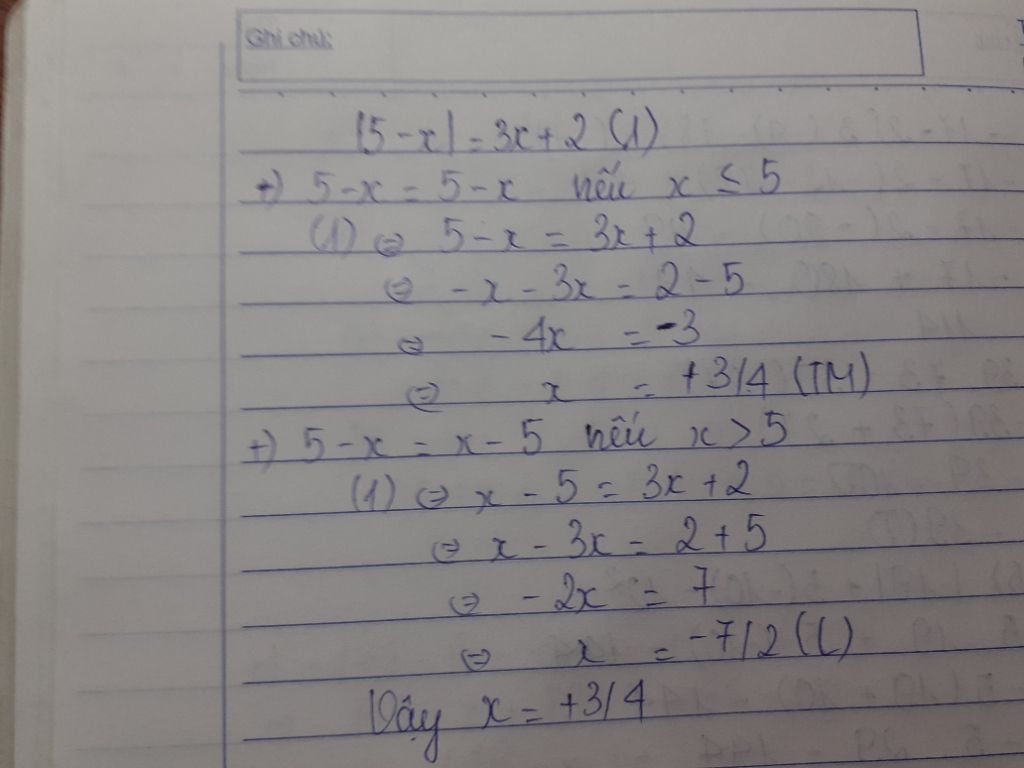 Ghi chú:
|5-x| = 3x+2 (1)
+) 5-x = 5-x nếu x ≤ 5
(1) ⇔ 5-x = 3x+2
⇔ -x - 3x = 2-5
⇔ -4x = -3
⇔ x = +3/4 (TM)
+) 5-x = x-5 nếu x > 5
(1) ⇔ x - 5 = 3x+2
⇔ x - 3x = 2+5
⇔ -2x = 7
⇔ x = -7/2 (L)
Vậy x = +3/4